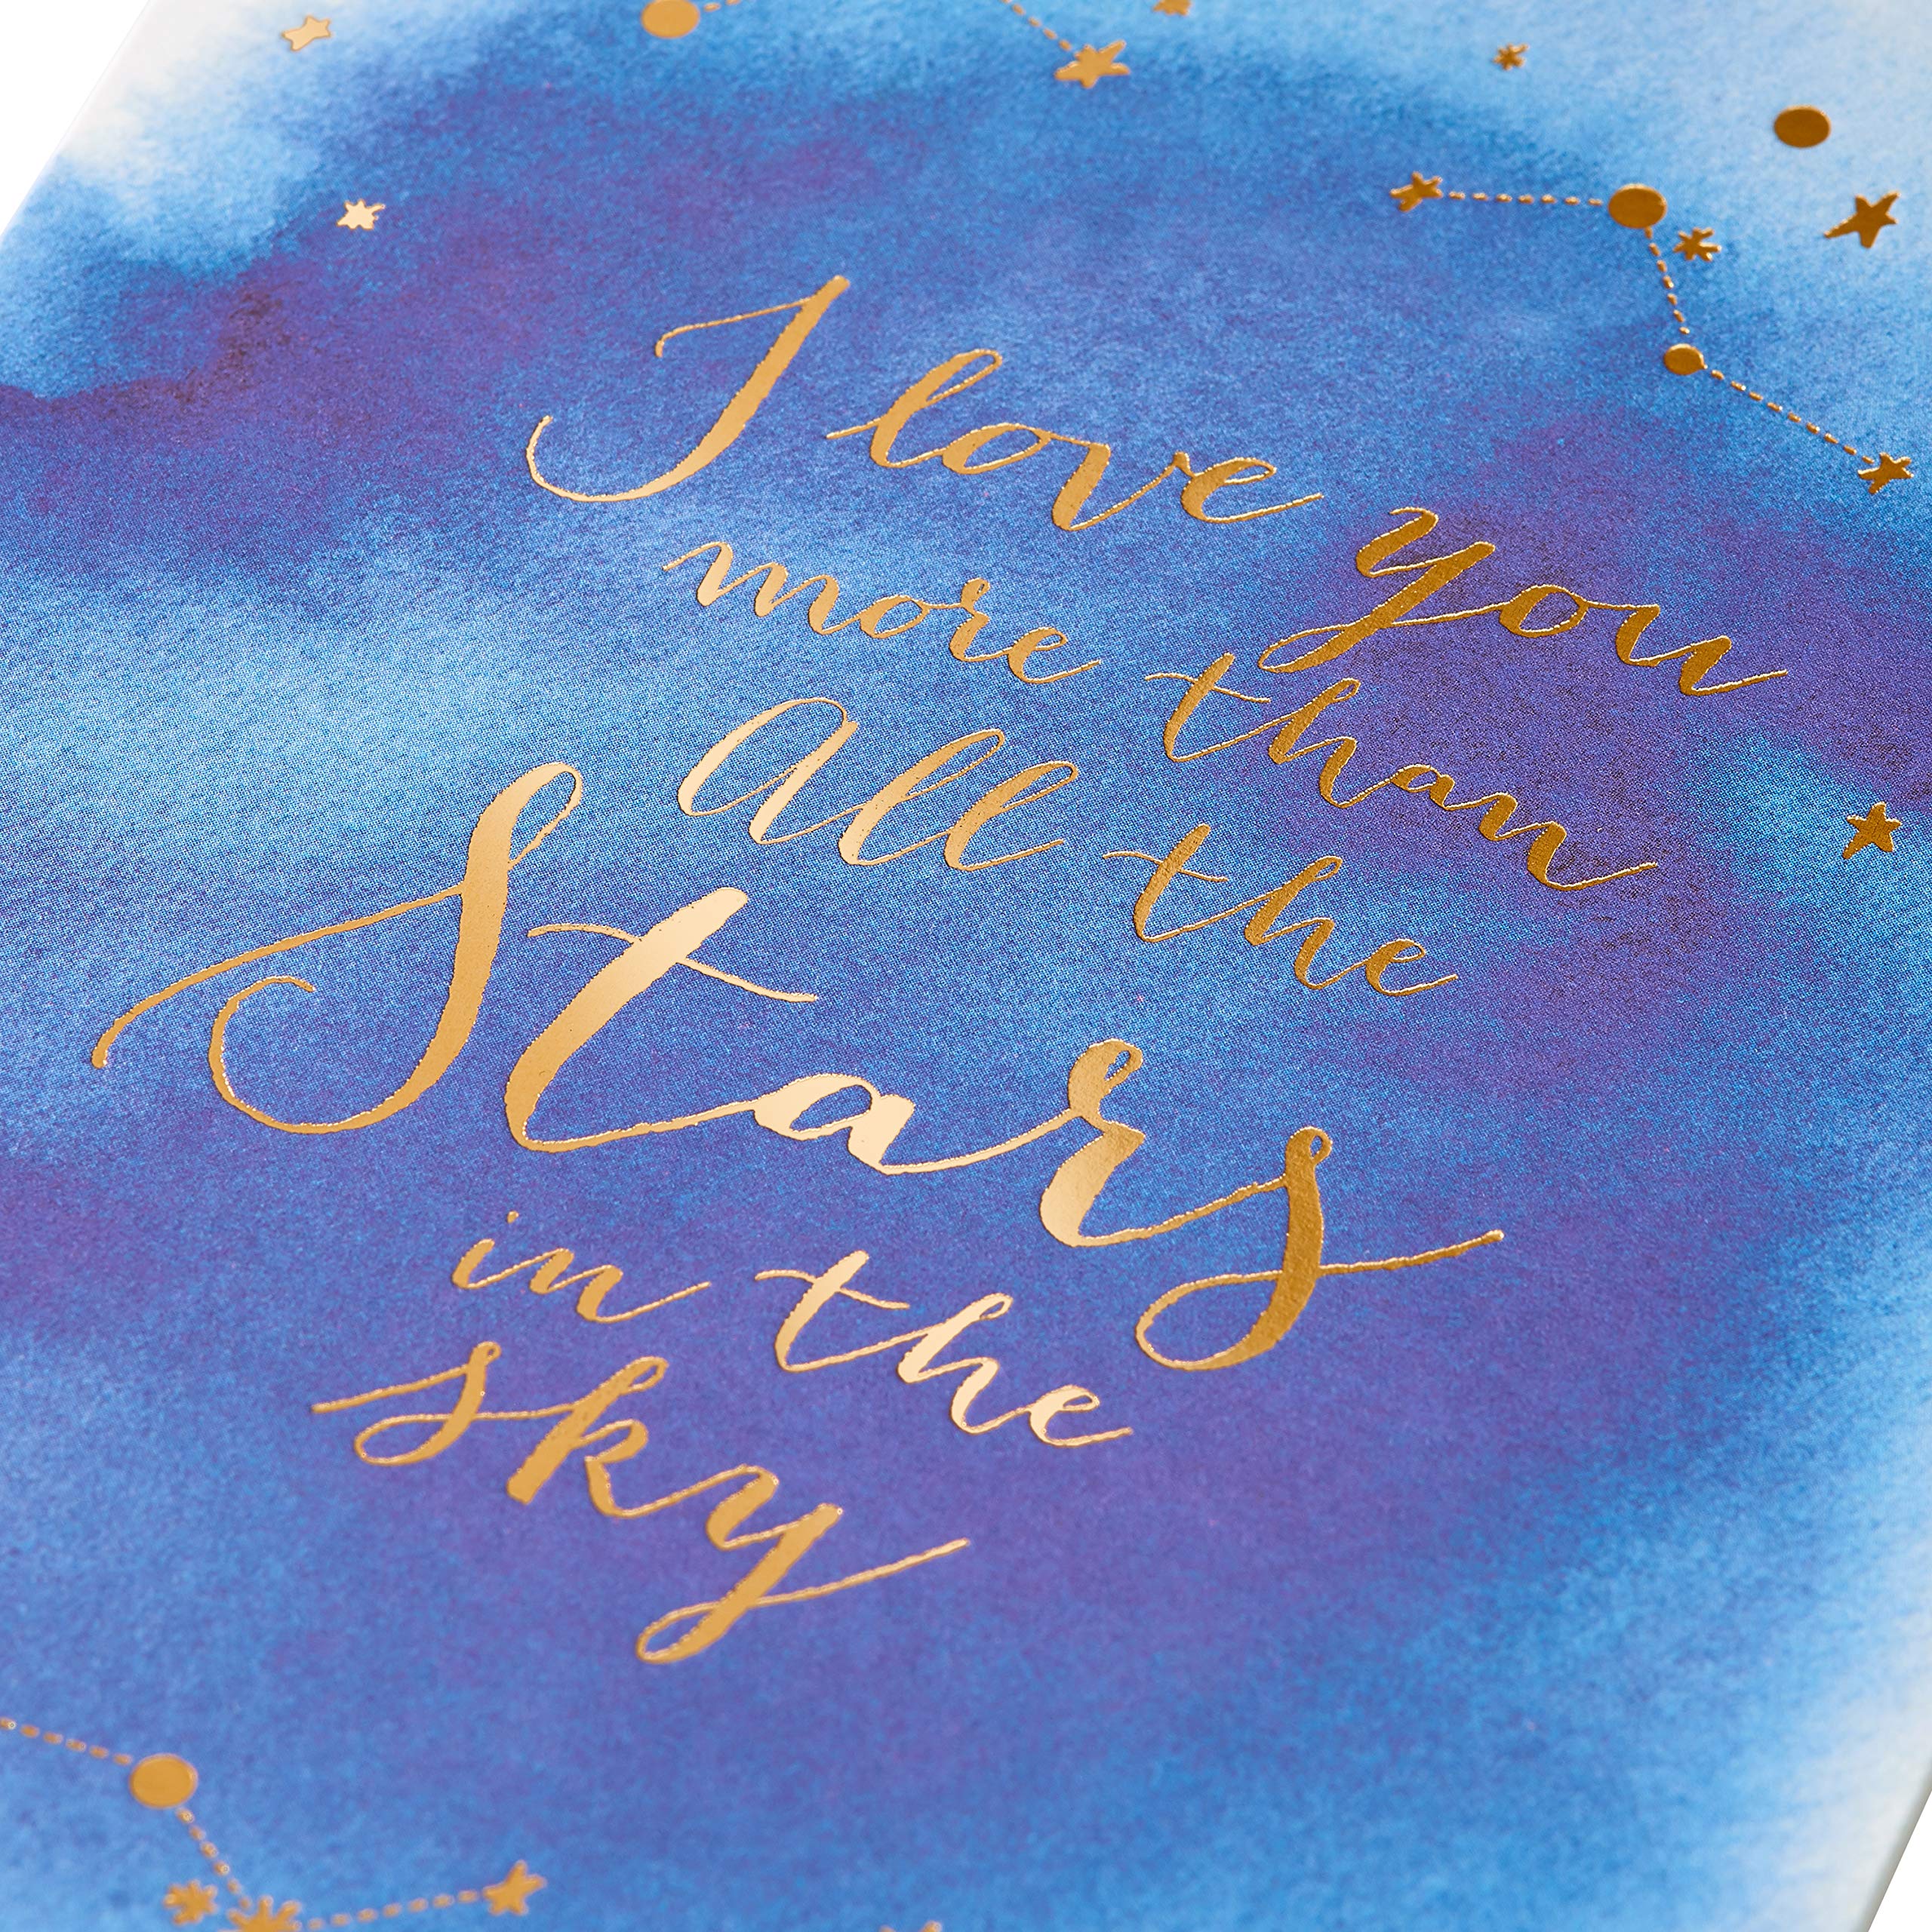 I love you
more than
all the
Stars
in the
sky